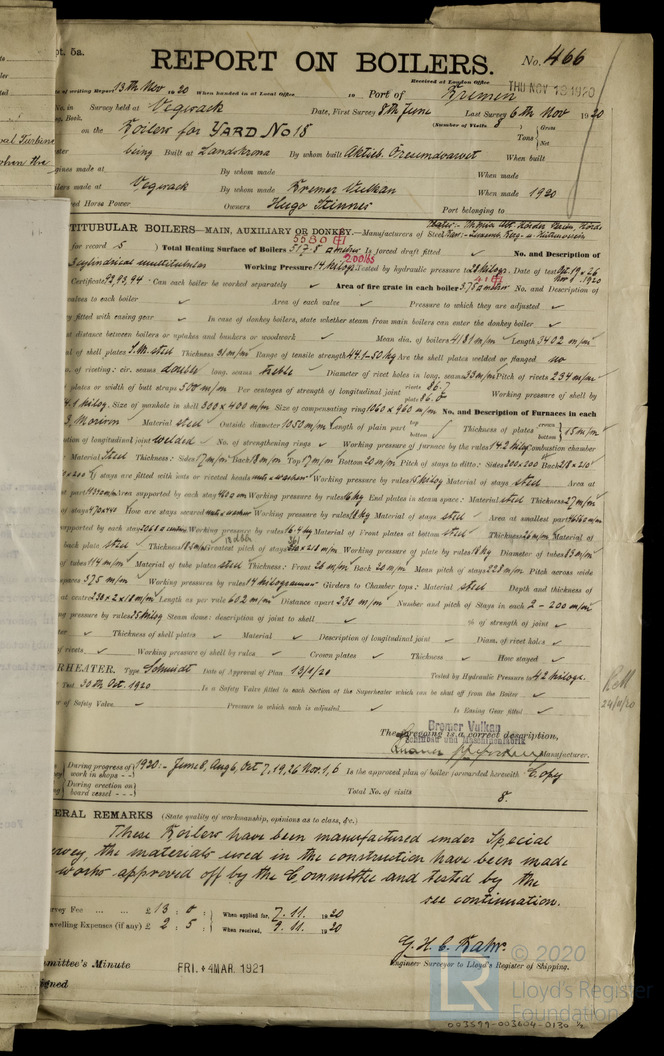 pt. 5a.
REPORT ON BOILERS.
No. 466
Received at London Office THU NOV 18 1920
of writing Report 13th Nov 1920 When handed in at Local Office 19 Port of Bremen
No. in Survey held at Vegesack Date, First Survey 8th June Last Survey 6th Nov 1920
Reg. Book.
(Number of Visits 8)
on the Boilers for YARD No 18 Tons Gross Net
being Built at Landskrona By whom built Aktieb. Oresundvarvet When built
Engines made at By whom made When made
Boilers made at Vegesack By whom made Bremer Vulkan When made 1920
Horse Power Owners Hugo Stinnes Port belonging to
MULTITUBULAR BOILERS—MAIN, AUXILIARY OR DONKEY.—Manufacturers of Steel
for record S Total Heating Surface of Boilers 5580 Is forced draft fitted ✓ No. and Description of
3 cylindrical multitubular Working Pressure 14 kilog 200 lbs Tested by hydraulic pressure to 28 kilog. Date of test Oct. 19 & 26 Nov 1920
Certificate 92, 93, 94 Can each boiler be worked separately ✓ Area of fire grate in each boiler No. and Description of
valves to each boiler ✓ Area of each valve ✓ Pressure to which they are adjusted ✓
fitted with easing gear ✓ In case of donkey boilers, state whether steam from main boilers can enter the donkey boiler ✓
distance between boilers or uptakes and bunkers or woodwork ✓ Mean dia. of boilers 4181 m/m Length 3402 m/m
of shell plates S.M. steel Thickness 31 m/m Range of tensile strength 44.1-50 kg Are the shell plates welded or flanged no
of riveting: cir. seams double long. seams treble Diameter of rivet holes in long. seams 33 m/m Pitch of rivets 234 m/m
plates or width of butt straps 500 m/m Per centages of strength of longitudinal joint rivets 86.7 plate 86.0 Working pressure of shell by
14.1 kilog. Size of manhole in shell 300 x 400 m/m Size of compensating ring 1060 x 960 m/m No. and Description of Furnaces in each
3, Morison Material steel Outside diameter 1050 m/m Length of plain part top bottom Thickness of plates crown bottom 15 m/m
Description of longitudinal joint welded No. of strengthening rings ✓ Working pressure of furnace by the rules 14.2 kilog Combustion chamber
Material Steel Thickness: Sides 17 m/m Back 18 m/m Top 17 m/m Bottom 20 m/m Pitch of stays to ditto: Sides 200 x 200 Back 218 x 210
If stays are fitted with nuts or riveted heads nuts & washers Working pressure by rules 15 kilog Material of stays steel Area at
Area supported by each stay Working pressure by rules 16 kg End plates in steam space: Material steel Thickness 27 m/m
of stays 470x440 How are stays secured nuts & washers Working pressure by rules 18 kg Material of stays steel Area at smallest part
supported by each stay 2068 Working pressure by rules 16.4 kg Material of Front plates at bottom steel Thickness 26 m/m Material of
back plate steel Thickness 18.5 m/m Greatest pitch of stays Working pressure of plate by rules 18 kg Diameter of tubes 83 m/m
of tubes 114 m/m Material of tube plates steel Thickness: Front 26 m/m Back 20 m/m Mean pitch of stays 228 m/m Pitch across wide
spaces 575 m/m Working pressures by rules 14 kilogrammes Girders to Chamber tops: Material steel Depth and thickness of
at centre 230 x 2 x 18 m/m Length as per rule 602 m/m Distance apart 230 m/m Number and pitch of Stays in each 2 – 200 m/m
pressure by rules 15 kilog Steam dome: description of joint to shell ✓ % of strength of joint ✓
✓ Thickness of shell plates ✓ Material ✓ Description of longitudinal joint ✓ Diam. of rivet holes ✓
of rivets ✓ Working pressure of shell by rules ✓ Crown plates ✓ Thickness ✓ How stayed ✓
SUPERHEATER. Type Schmidt Date of Approval of Plan 13/1/20 Tested by Hydraulic Pressure to 42 kilogr.
Test 30th Oct. 1920 Is a Safety Valve fitted to each Section of the Superheater which can be shut off from the Boiler ✓
of Safety Valve ✓ Pressure to which each is adjusted ✓ Is Easing Gear fitted ✓
24/11/20
The foregoing is a correct description,
Bremer Vulkan
Schiffbau und Maschinenfabrik
Manufacturer.
During progress of work in shops - - 1920:- June 8, Aug 6, Oct 7, 19, 26 Nov. 1, 6 Is the approved plan of boiler forwarded herewith Copy
During erection on board vessel - - Total No. of visits 8.
GENERAL REMARKS (State quality of workmanship, opinions as to class, &c.)
These Boilers have been manufactured under Special
Survey, the materials used in the construction have been made
works approved off by the Committee and tested by the
see continuation.
Survey Fee ... ... £ 13 : 0 : When applied for, 7. 11. 1920
Travelling Expenses (if any) £ 2 : 5 : When received, 9. 11. 1920
G. H. C. Bahr.
Engineer Surveyor to Lloyd's Register of Shipping.
Committee's Minute FRI. 4 MAR. 1921
Assigned
© 2020
Lloyd's Register
Foundation
003599-003604-0130